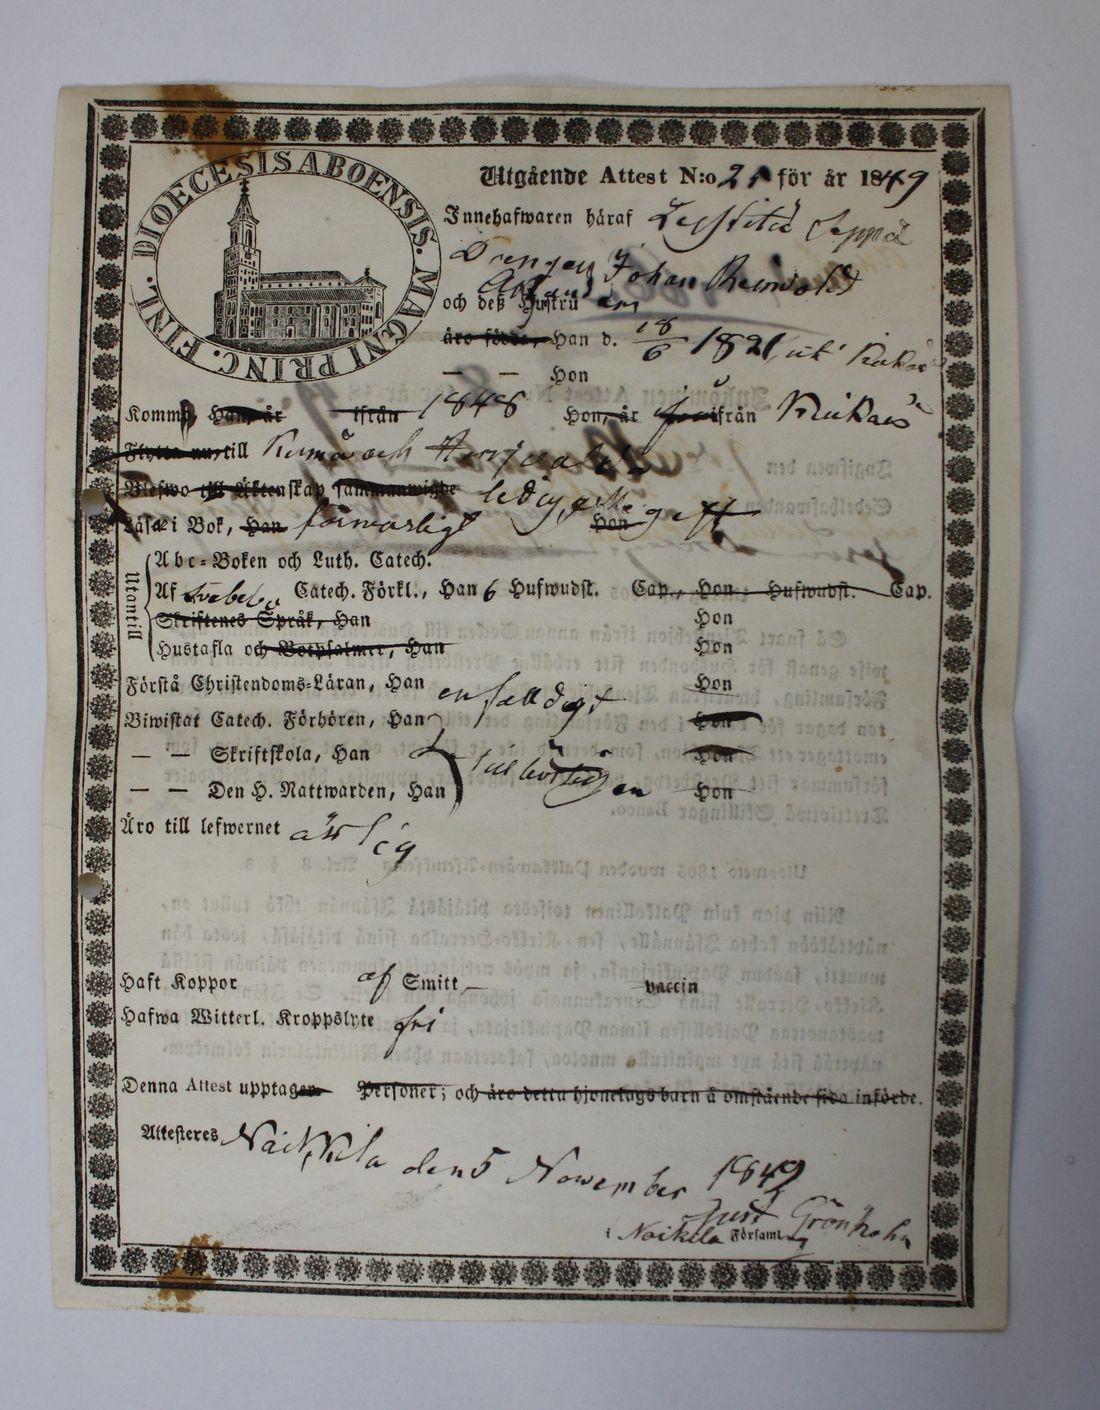 DIOECESIS ABOENSIS. MAGNI PRINC. FINL.
Utgående Attest N:o 21 för år 1849
Innehafwaren häraf Seppä
Drengen Johan Reinwold
och deß Hustru
äro födde, Han d. 18/6 1821 uti
— — Hon
Komm Han, år ifrån 1848 Hon, år ifrån Kiukais
Flytta nu, till Kumå och
Blefwo till Äktenskap sammanwigde ledig
Läsa i Bok, Han försvarligt Hon
Utantill
Abc-Boken och Luth. Catech.
Af Svebelii Catech. Förkl., Han 6 Hufwudst. Cap., Hon Hufwudst. Cap.
Skriftenes Språk, Han Hon
Hustafla och Botpsalmer, Han Hon
Förstå Christendoms-Läran, Han enfalldigt Hon
Biwistat Catech. Förhören, Han Hon
— — Skriftskola, Han Hon
— — Den H. Nattwarden, Han Hon
Äro till lefwernet ärlig
Haft Koppor af Smitt vaccin
Hafwa Witterl. Kroppslyte fri
Denna Attest upptagen Personer; och äro detta hjonelags barn å omstående sida införde.
Attesteres Nackila den 5 November 1849
Just Grönholm
i Nackila Församl.